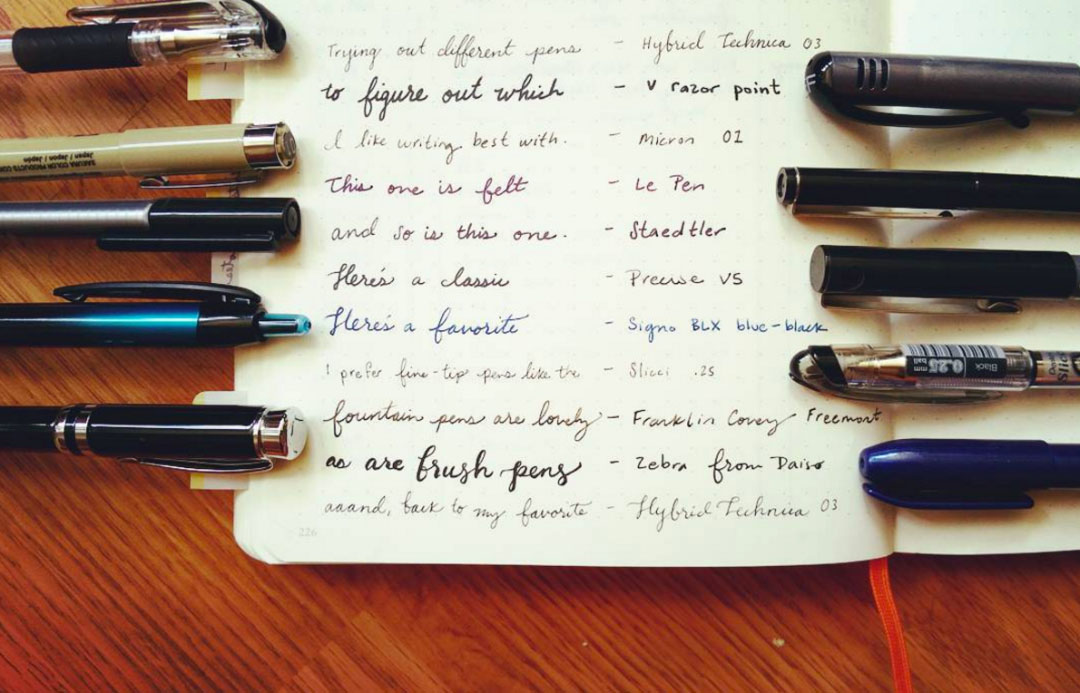 Trying out different pens - Hybrid Technica 03
to figure out which - V razor point
I like writing best with. - Micron 01
This one is felt - Le Pen
and so is this one. - Staedtler
Here's a classic - Precise V5
Here's a favorite - Signo BLX blue-black
I prefer fine-tip pens like the - Slicci .25
fountain pens are lovely - Franklin Covey Freemont
as are brush pens - Zebra from Daiso
aaand, back to my favorite - Hybrid Technica 03
226
SAKURA COLOR PRODUCTS CORP
Japan / Japon / Japón
Black
0.25
mm
ball